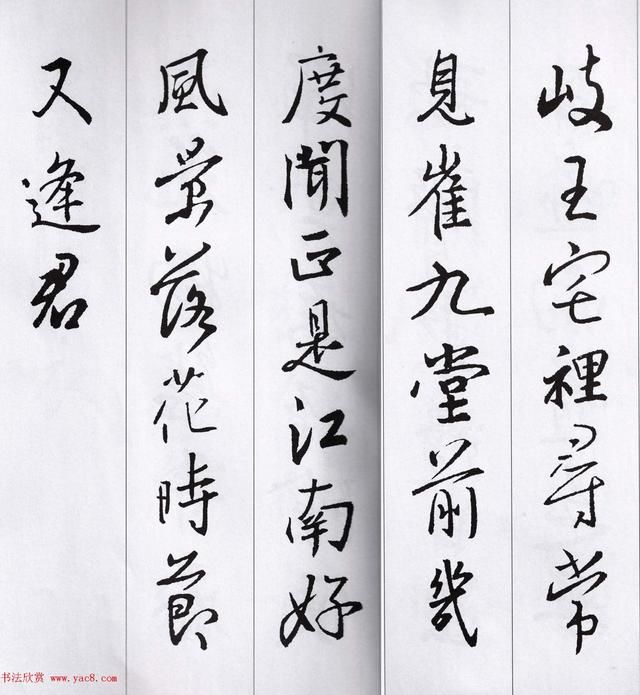 岐王宅裡尋常
見崔九堂前幾
度聞正是江南好
風景落花時節
又逢君
书法欣赏 www.yac8.com